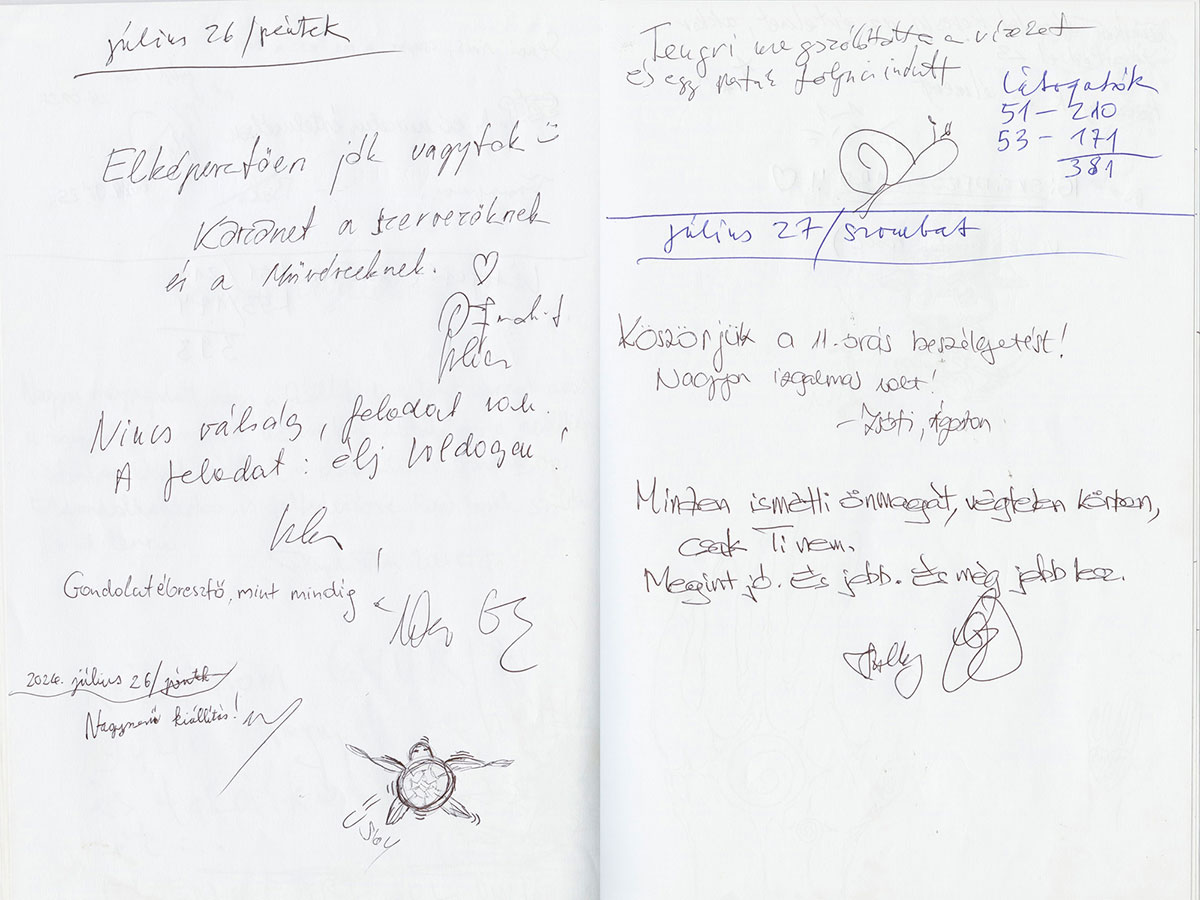 július 26/péntek
Elképesztően jók vagytok
Köszönet a szervezőknek
és a Művészeknek.
Nincs válság, feladat van.
A feladat: élj boldogan!
Gondolatébresztő, mint mindig!
2024. július 26/péntek
Nagyszerű kiállítás!
Tengri megszólította a vizeket
és egy patak folyni indult
Látogatók
51 - 210
53 - 171
381
július 27/szombat
Köszönjük a 11. órás beszélgetést!
Nagyon izgalmas volt!
- Zsófi, Ágoston
Minden ismétli önmagát, végtelen körben,
csak Ti nem.
Megint jó. És jobb. És még jobb lesz.